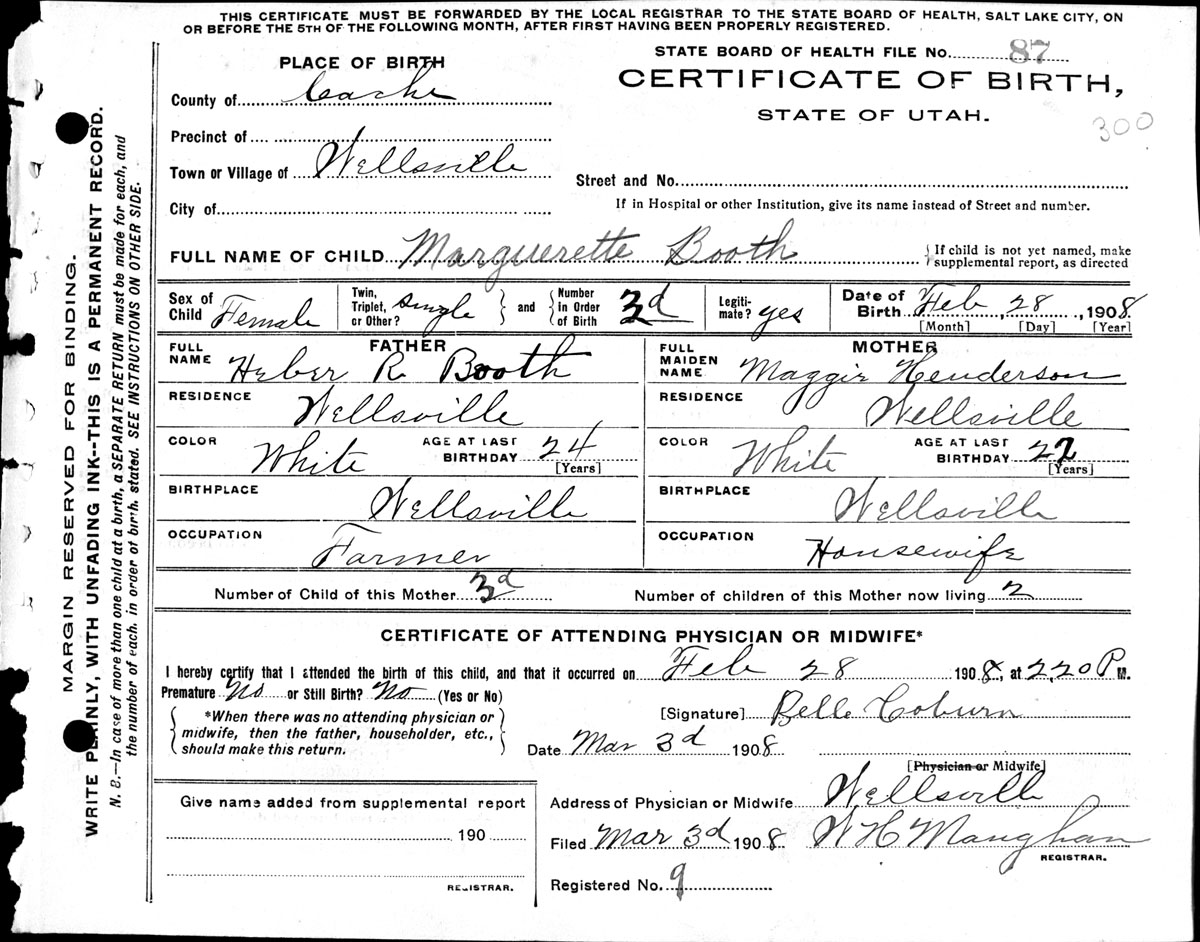 THIS CERTIFICATE MUST BE FORWARDED BY THE LOCAL REGISTRAR TO THE STATE BOARD OF HEALTH, SALT LAKE CITY, ON
OR BEFORE THE 5TH OF THE FOLLOWING MONTH, AFTER FIRST HAVING BEEN PROPERLY REGISTERED.
MARGIN RESERVED FOR BINDING.
WRITE PLAINLY, WITH UNFADING INK--THIS IS A PERMANENT RECORD.
N. B.—In case of more than one child at a birth, a SEPARATE RETURN must be made for each, and
the number of each, in order of birth, stated. SEE INSTRUCTIONS ON OTHER SIDE.
STATE BOARD OF HEALTH FILE No. 87
CERTIFICATE OF BIRTH,
STATE OF UTAH.
300
PLACE OF BIRTH
County of Cache
Precinct of
Town or Village of Wellsville
City of
Street and No.
If in Hospital or other Institution, give its name instead of Street and number.
FULL NAME OF CHILD Marguerette Booth
{If child is not yet named, make
supplemental report, as directed
Sex of Child Female
Twin, Triplet, or Other? single } and { Number in Order of Birth 3d
Legitimate? yes
Date of Birth Feb 28, 1908
[Month] [Day] [Year]
FATHER
FULL NAME Heber R. Booth
RESIDENCE Wellsville
COLOR White AGE AT LAST BIRTHDAY 24 [Years]
BIRTHPLACE Wellsville
OCCUPATION Farmer
MOTHER
FULL MAIDEN NAME Maggie Henderson
RESIDENCE Wellsville
COLOR White AGE AT LAST BIRTHDAY 22 [Years]
BIRTHPLACE Wellsville
OCCUPATION Housewife
Number of Child of this Mother 3d Number of children of this Mother now living 2
CERTIFICATE OF ATTENDING PHYSICIAN OR MIDWIFE*
I hereby certify that I attended the birth of this child, and that it occurred on Feb 28 1908, at 2,20 P M.
Premature No or Still Birth? No (Yes or No)
{ *When there was no attending physician or
midwife, then the father, householder, etc.,
should make this return. }
[Signature] Belle Coburn
Date Mar 3d 1908
[Physician or Midwife]
Address of Physician or Midwife Wellsville
Filed Mar 3d 1908 W H Maughan
REGISTRAR.
Registered No. 9
Give name added from supplemental report
190
REGISTRAR.